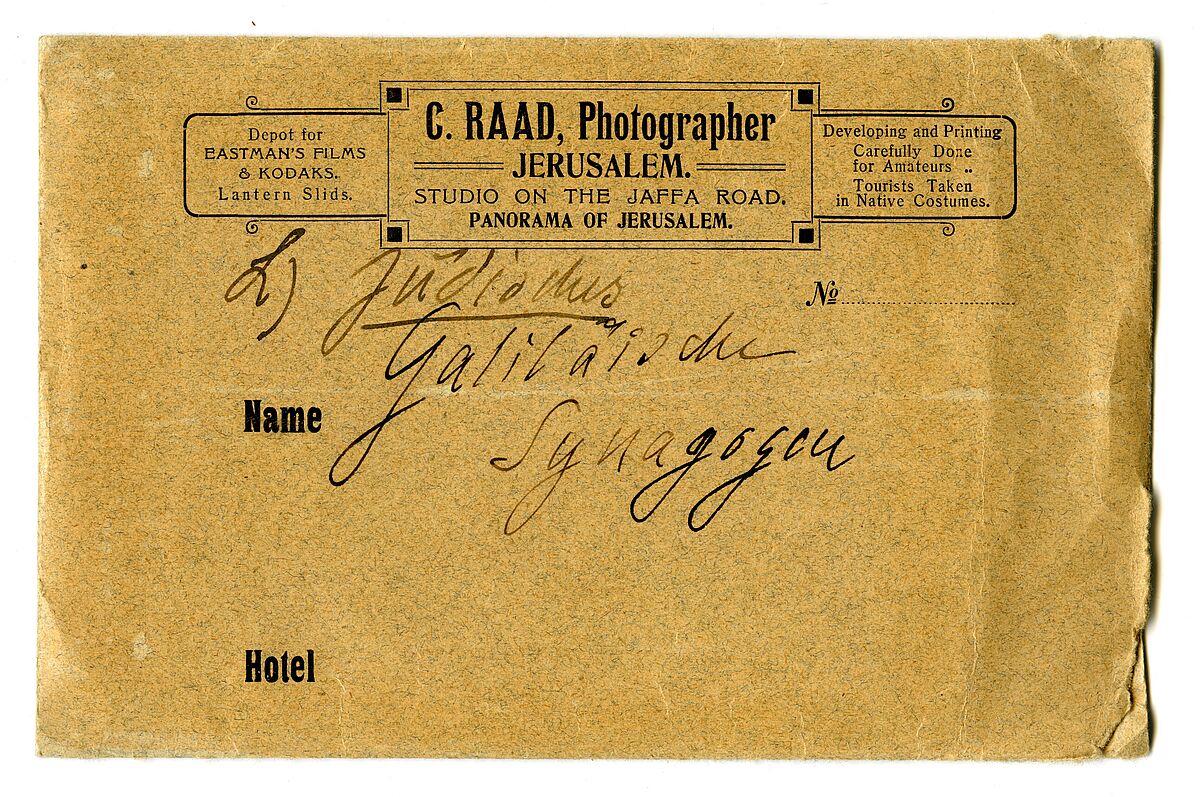 Depot for
EASTMAN'S FILMS
& KODAKS.
Lantern Slids.
C. RAAD, Photographer
JERUSALEM.
STUDIO ON THE JAFFA ROAD.
PANORAMA OF JERUSALEM.
Developing and Printing
Carefully Done
for Amateurs ..
Tourists Taken
in Native Costumes.
L) Jüdisches
No
Galiläische
Name
Synagogen
Hotel